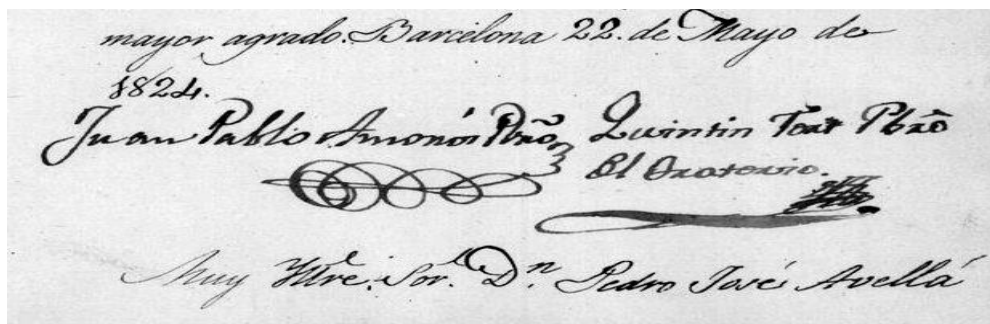 mayor agrado. Barcelona 22. de Mayo de
1824.
Juan Pablo Amonós Pbrõ Quintin Tort Pbrõ
El Oratorio.
Muy Iltre. Sor. Dn. Pedro José Avellá